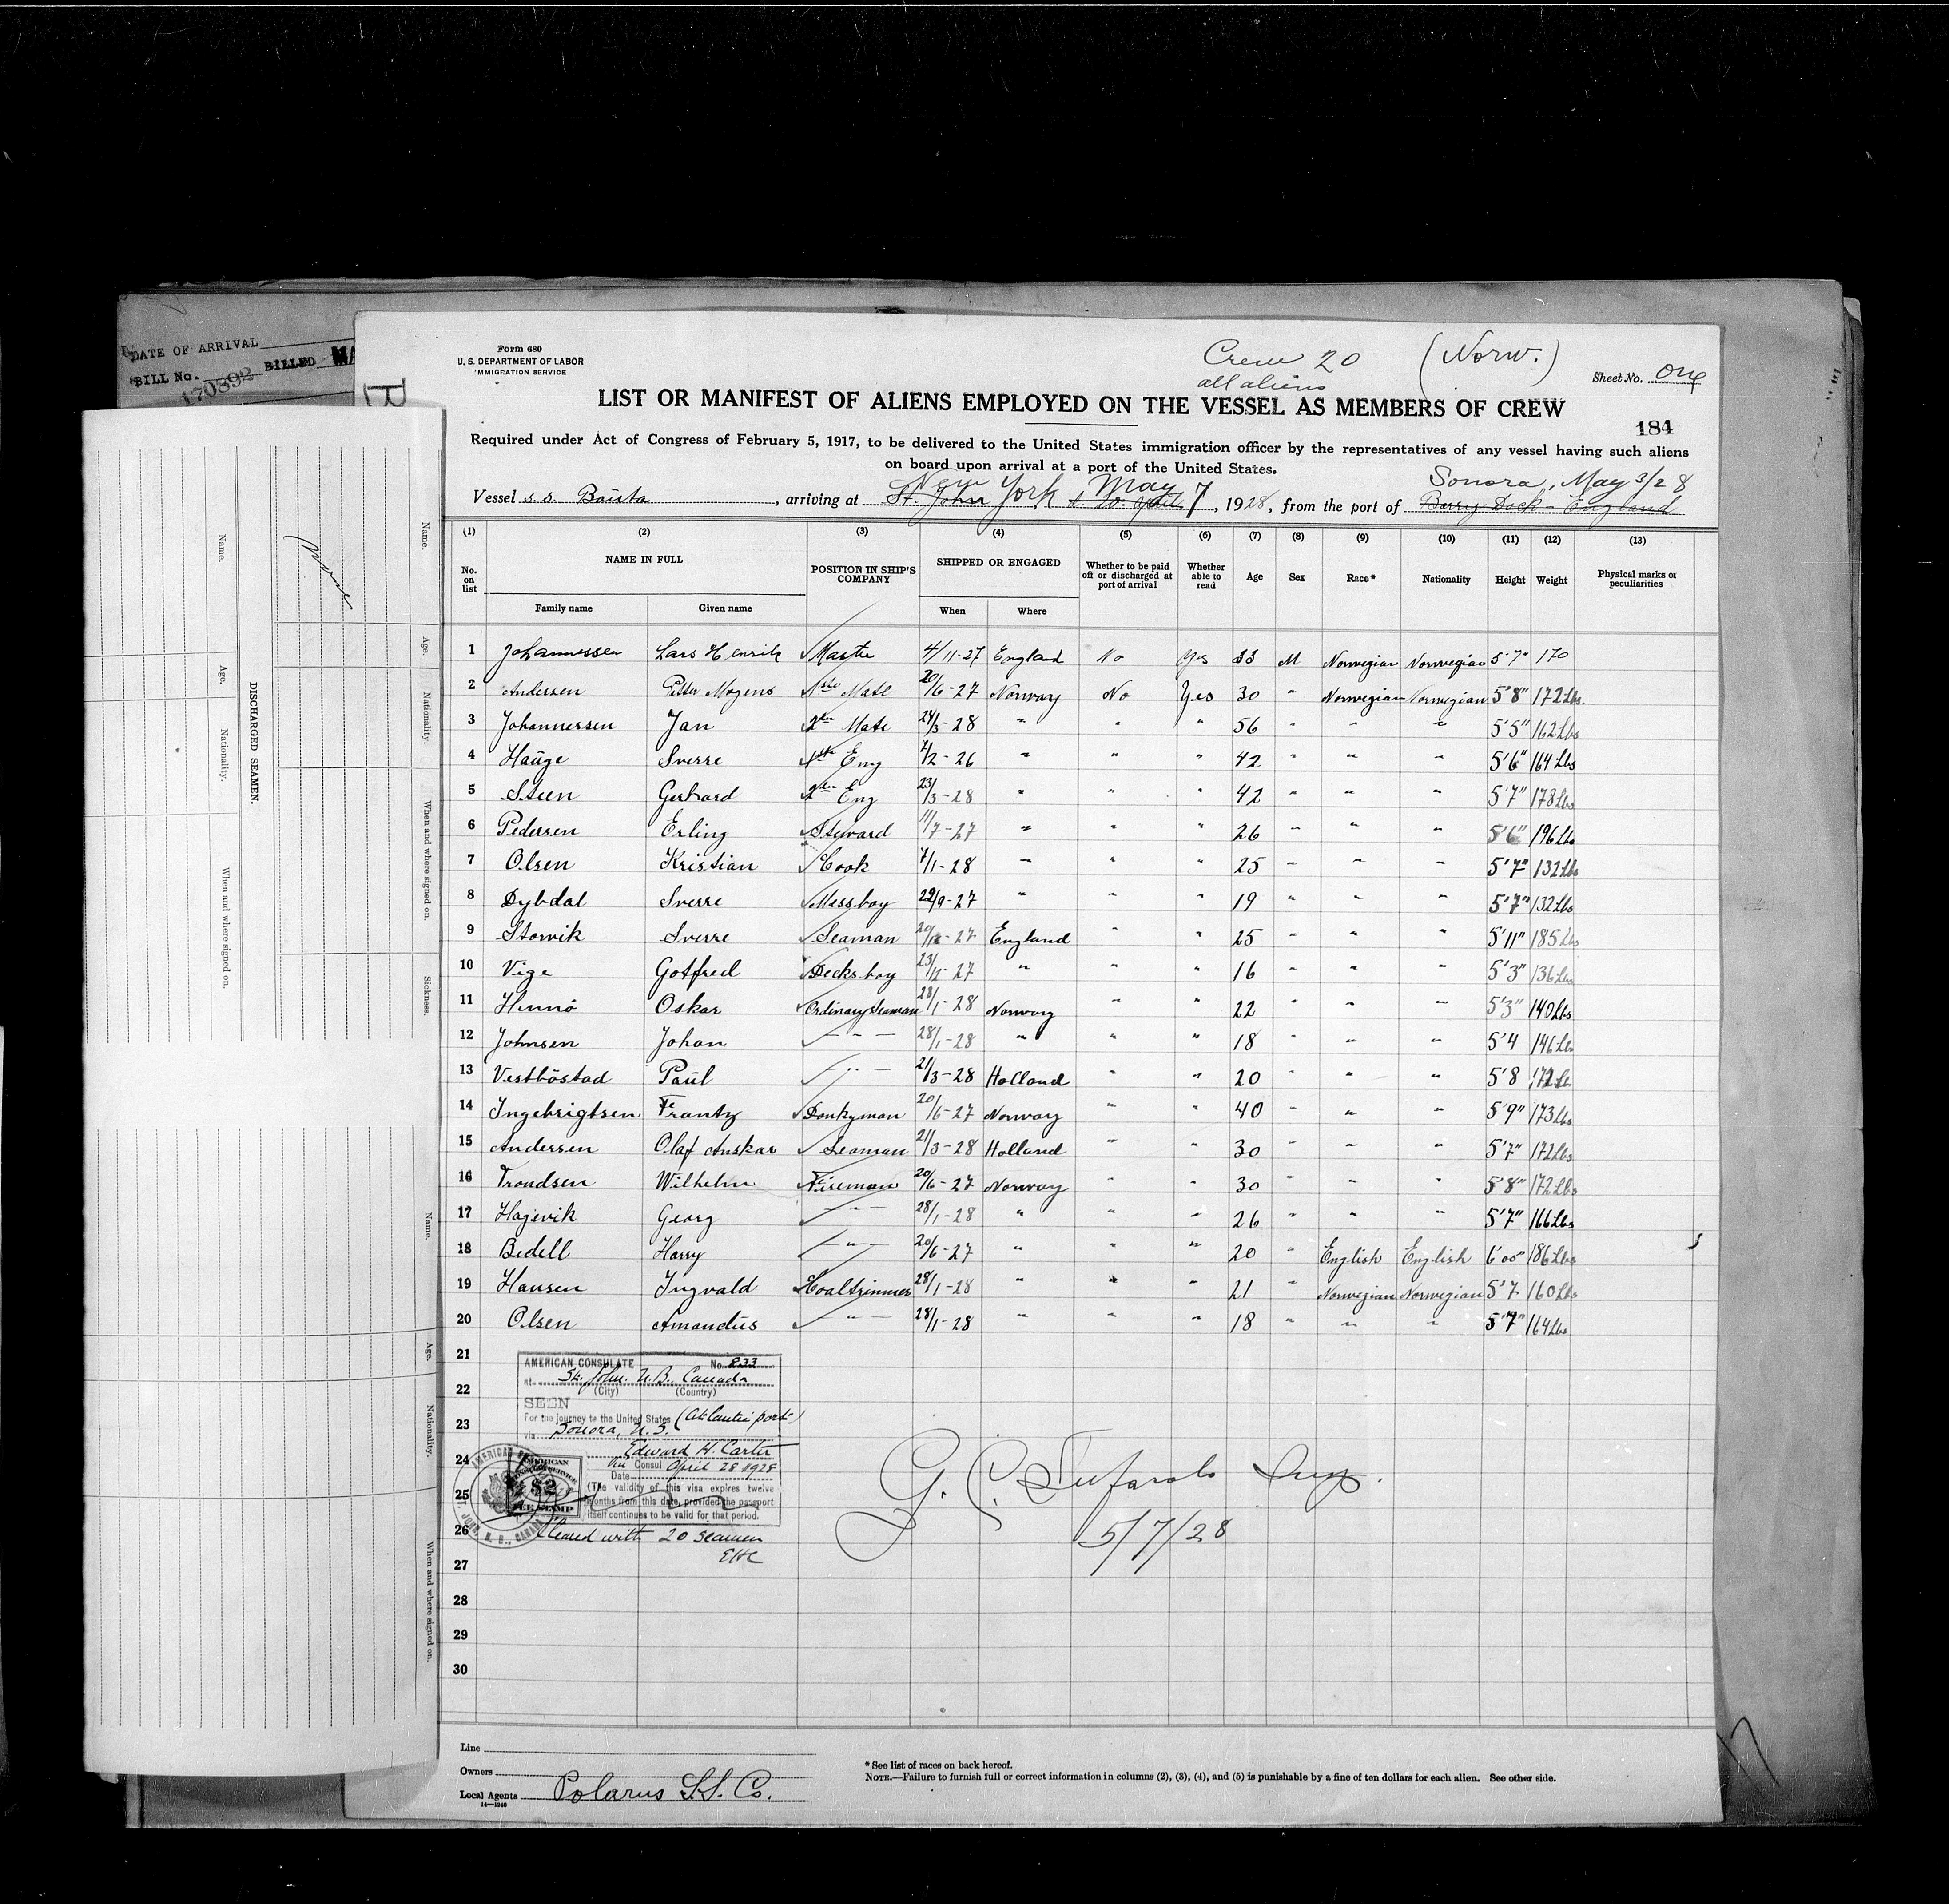 DATE OF ARRIVAL
BILL No. 170892 BILLED MA
Form 680
U. S. DEPARTMENT OF LABOR
IMMIGRATION SERVICE
Crew 20 (Norw.)
all aliens
Sheet No. One
LIST OR MANIFEST OF ALIENS EMPLOYED ON THE VESSEL AS MEMBERS OF CREW
184
Required under Act of Congress of February 5, 1917, to be delivered to the United States immigration officer by the representatives of any vessel having such aliens
on board upon arrival at a port of the United States.
New York May 7 Sonora, May 3/28
Vessel s.s. Baüta, arriving at St. John, 1928, from the port of Barry Dock - England
(1) (2) (3) (4) (5) (6) (7) (8) (9) (10) (11) (12) (13)
No. on list NAME IN FULL POSITION IN SHIP'S COMPANY SHIPPED OR ENGAGED Whether to be paid off or discharged at port of arrival Whether able to read Age Sex Race* Nationality Height Weight Physical marks or peculiarities
Family name Given name When Where
1 Johannessen Lars Henrik Master 4/11-27 England No Yes 33 M Norwegian Norwegian 5'7" 170
2 Andersen Petter Mogens 1ste Mate 20/6-27 Norway No Yes 30 " Norwegian Norwegian 5'8" 172 Lbs.
3 Johannessen Jan 2den Mate 24/3-28 " " " 56 " " 5'5" 162 Lbs
4 Haüge Sverre 1ste Eng 7/2-26 " " " 42 " " " 5'6" 164 Lbs
5 Steen Gerhard 2den Eng 23/3-28 " " " 42 " " " 5'7" 178 Lbs
6 Pedersen Erling Steward 11/7-27 " " " 26 " " " 5'6" 196 Lbs
7 Olsen Kristian Cook 7/1-28 " " " 25 " " " 5'7" 132 Lbs
8 Dybdal Sverre Messboy 22/9-27 " " " 19 " " " 5'7" 132 Lbs
9 Storvik Sverre Seaman 20/12-27 England " " 25 " " " 5'11" 185 Lbs
10 Vige Gotfred Decksboy 23/11-27 " " " 16 " " " 5'3" 136 Lbs
11 Hinnö Oskar Ordinary Seaman 28/1-28 Norway " " 22 " " " 5'3" 140 Lbs
12 Johnsen Johan - " - 28/1-28 " " " 18 " " " 5'4 146 Lbs
13 Vestböstad Paül " - 21/3-28 Holland " " 20 " " " 5'8 172 Lb
14 Ingebrigtsen Frantz Donkyman 20/6-27 Norway " " 40 " " " 5'9" 173 Lbs
15 Andersen Olaf Anskar Seaman 21/3-28 Holland " " 30 " " " 5'7" 172 Lbs
16 Trondsen Wilhelm Fireman 20/6-27 Norway " " 30 " " " 5'8" 172 Lbs
17 Hagevik Georg - " - 28/1-28 " " " 26 " " " 5'7" 166 Lbs
18 Bedell Harry - " - 20/6-27 " " " 20 " English English 6'00" 186 Lbs
19 Hansen Ingvald Koaltrimmer 28/1-28 " " " 21 " Norwegian Norwegian 5'7 160 Lbs
20 Olsen Amandüs - " - 28/1-28 " " " 18 " " " 5'7" 164 Lbs
21
22
23
24
25
26
27
28
29
30
AMERICAN CONSULATE No. 833
at St. John. N.B. Canada
(City) (Country)
SEEN
For the journey to the United States (Atlantic port)
via Sonora, N.S.
Edward H. Carter
Vice Consul April 28 1928
Date
(The validity of this visa expires twelve
months from this date, provided the passport
itself continues to be valid for that period.
AMERICAN
$2
FEE STAMP
Cleared with 20 seamen
EHC
5/7/28
Line
Owners
Local Agents Polarus S.S. Co.
14-1240
* See list of races on back hereof.
NOTE.—Failure to furnish full or correct information in columns (2), (3), (4), and (5) is punishable by a fine of ten dollars for each alien. See other side.
DISCHARGED SEAMEN.
Name. Age. Nationality. When and where signed on. Sickness.
Name. Age. Nationality. When and where signed on.
Name. Age. Nationality. When and where signed on.